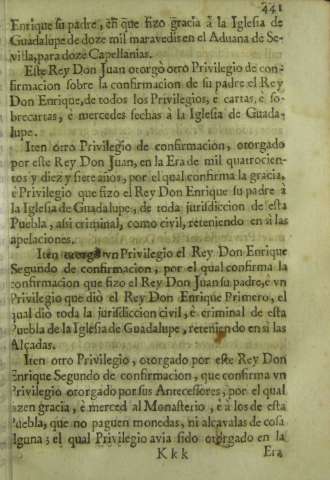 441
Enrique su padre, en que fizo gracia à la Iglesia de
Guadalupe de doze mil maravedis en el Aduana de Se-
villa, para doze Capellanias.
Este Rey Don Juan otorgò otro Privilegio de con-
firmacion sobre la confirmacion de su padre el Rey
Don Enrique, de todos los Privilegios, è cartas, è so-
brecartas, è mercedes fechas à la Iglesia de Guada-
lupe.
Iten otro Privilegio de confirmacion, otorgado
por este Rey Don Juan, en la Era de mil quatrocien-
tos y diez y siete años, por el qual confirma la gracia,
è Privilegio que fizo el Rey Don Enrique su padre à
la Iglesia de Guadalupe, de toda jurisdiccion de esta
Puebla, assi criminal, como civil, reteniendo en sì las
apelaciones.
Iten otorgò vn Privilegio el Rey Don Enrique
Segundo de confirmacion, por el qual confirma la
confirmacion que fizo el Rey Don Juan su padre, è vn
Privilegio que diò el Rey Don Enrique Primero, el
qual diò toda la jurisdiccion civil, è criminal de esta
Puebla de la Iglesia de Guadalupe, reteniendo en sì las
Alçadas.
Iten otro Privilegio, otorgado por este Rey Don
Enrique Segundo de confirmacion, que confirma vn
Privilegio otorgado por sus Antecessores, por el qual
fazen gracia, è merced al Monasterio, è à los de esta
Puebla, que no paguen monedas, ni alcavalas de cosa
alguna; el qual Privilegio avia sido otorgado en la
Kkk Era